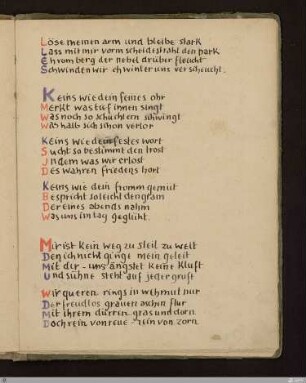 Löse meinen arm und bleibe stark
Lass mit mir vorm scheidestrahl den park
Eh vom berg der nebel drüber fleucht
Schwinden wir eh winter uns verscheucht.
Keins wie dein feines ohr
Merkt was tief innen singt
Was noch so schüchtern schwingt
Was halb sich schon verlor
Keins wie dein festes wort
Sucht so bestimmt den trost
In dem was wir erlost
Des wahren friedens hort
Keins wie dein fromm gemüt
Bespricht so leicht den gram
Der eines abends nahm
Was uns im tag geglüht.
Mir ist kein weg zu steil zu weit
Den ich nicht ginge mein geleit
Mit dir – uns ängstet keine kluft
Und sühne steht auf jeder gruft
Wir queren rings in wehmut nur
Der freudlos grauen aschen flur
Mit ihrem dürren gras und dorn
Doch rein von reue – rein von zorn